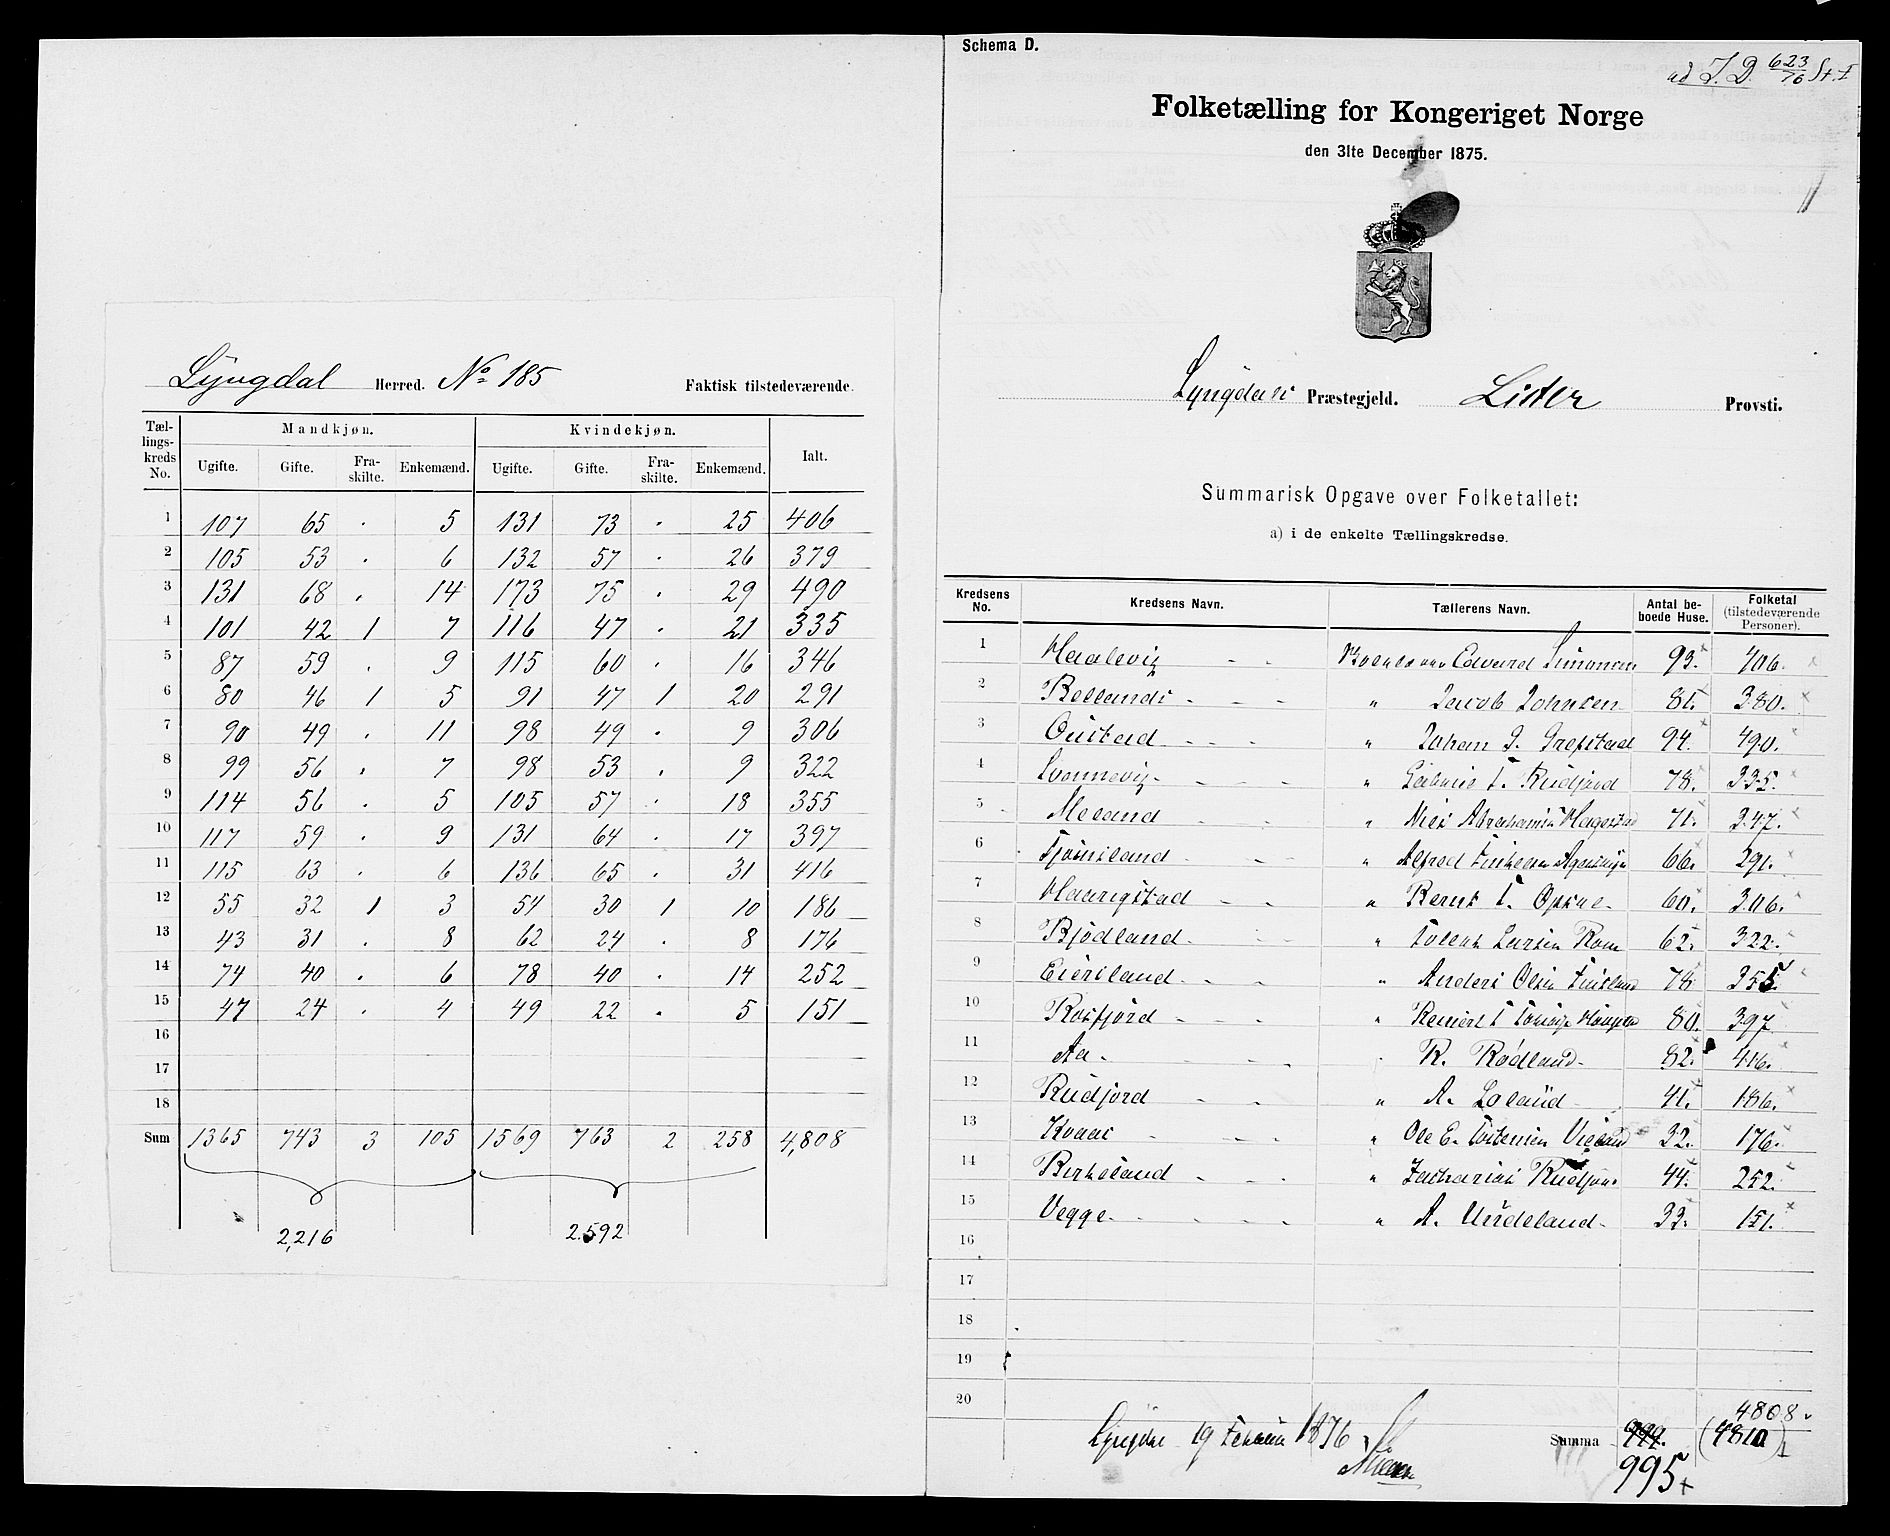 Lyngdal Herred. No 185 Faktisk tilstedeværende.
Tællingskreds No. Mandkjøn. Kvindekjøn. Ialt.
Ugifte. Gifte. Fraskilte. Enkemænd. Ugifte. Gifte. Fraskilte. Enkemænd.
1 107 65 . 5 131 73 . 25 406
2 105 53 . 6 132 57 . 26 379
3 131 68 . 14 173 75 . 29 490
4 101 42 1 7 116 47 . 21 335
5 87 59 . 9 115 60 . 16 346
6 80 46 1 5 91 47 1 20 291
7 90 49 . 11 98 49 . 9 306
8 99 56 . 7 98 53 . 9 322
9 114 56 . 5 105 57 . 18 355
10 117 59 . 9 131 64 . 17 397
11 115 63 . 6 136 65 . 31 416
12 55 32 1 3 54 30 1 10 186
13 43 31 . 8 62 24 . 8 176
14 74 40 . 6 78 40 . 14 252
15 47 24 . 4 49 22 . 5 151
16
17
18
Sum 1365 743 3 105 1569 763 2 258 4,808
2,216 2.592
Schema D.
ad J. D. 623/76 St. I
Folketælling for Kongeriget Norge
den 31te December 1875.
Lyngdals Præstegjeld. Lister Provsti.
Summarisk Opgave over Folketallet:
a) i de enkelte Tællingskredse.
Kredsens No. Kredsens Navn. Tællerens Navn. Antal beboede Huse. Folketal (tilstedeværende Personer).
1 Haalevig - - Edvard Simonsen 93. 406.
2 Bellands - - - " Jacob Johnsen 81. 380.
3 Oustad - - - " Johan G. Grefstad 94. 490.
4 Svennevig - - - - " Gabriel T. Rudjord 78. 335.
5 Meland - - - " Niels Abrahamsen Hagestad 71. 347.
6 Tjömsland - - - " Alfred 66. 291.
7 Haarigstad - - " Bernt T. Opsal - 60. 306.
8 Bjödland - - - " Tollak Larsen Rom 62. 322.
9 Eiersland - - - " Anders Olsen 78 355.
10 Rosfjord - - - - " Reinert T 80. 397
11 Aa - - - - R. Rödland - 82. 416.
12 Rudjord - - " A. Loland 41. 186.
13 Kvaas - - - " Ole E. 32. 176.
14 Birkeland - - - " Zacharias Rudjord 44. 252.
15 Vegge - - - - " A. Undeland - 33. 151.
16
17
18
19
20
4808
Lyngdal 19 1876 Summa 999. (4810)
995